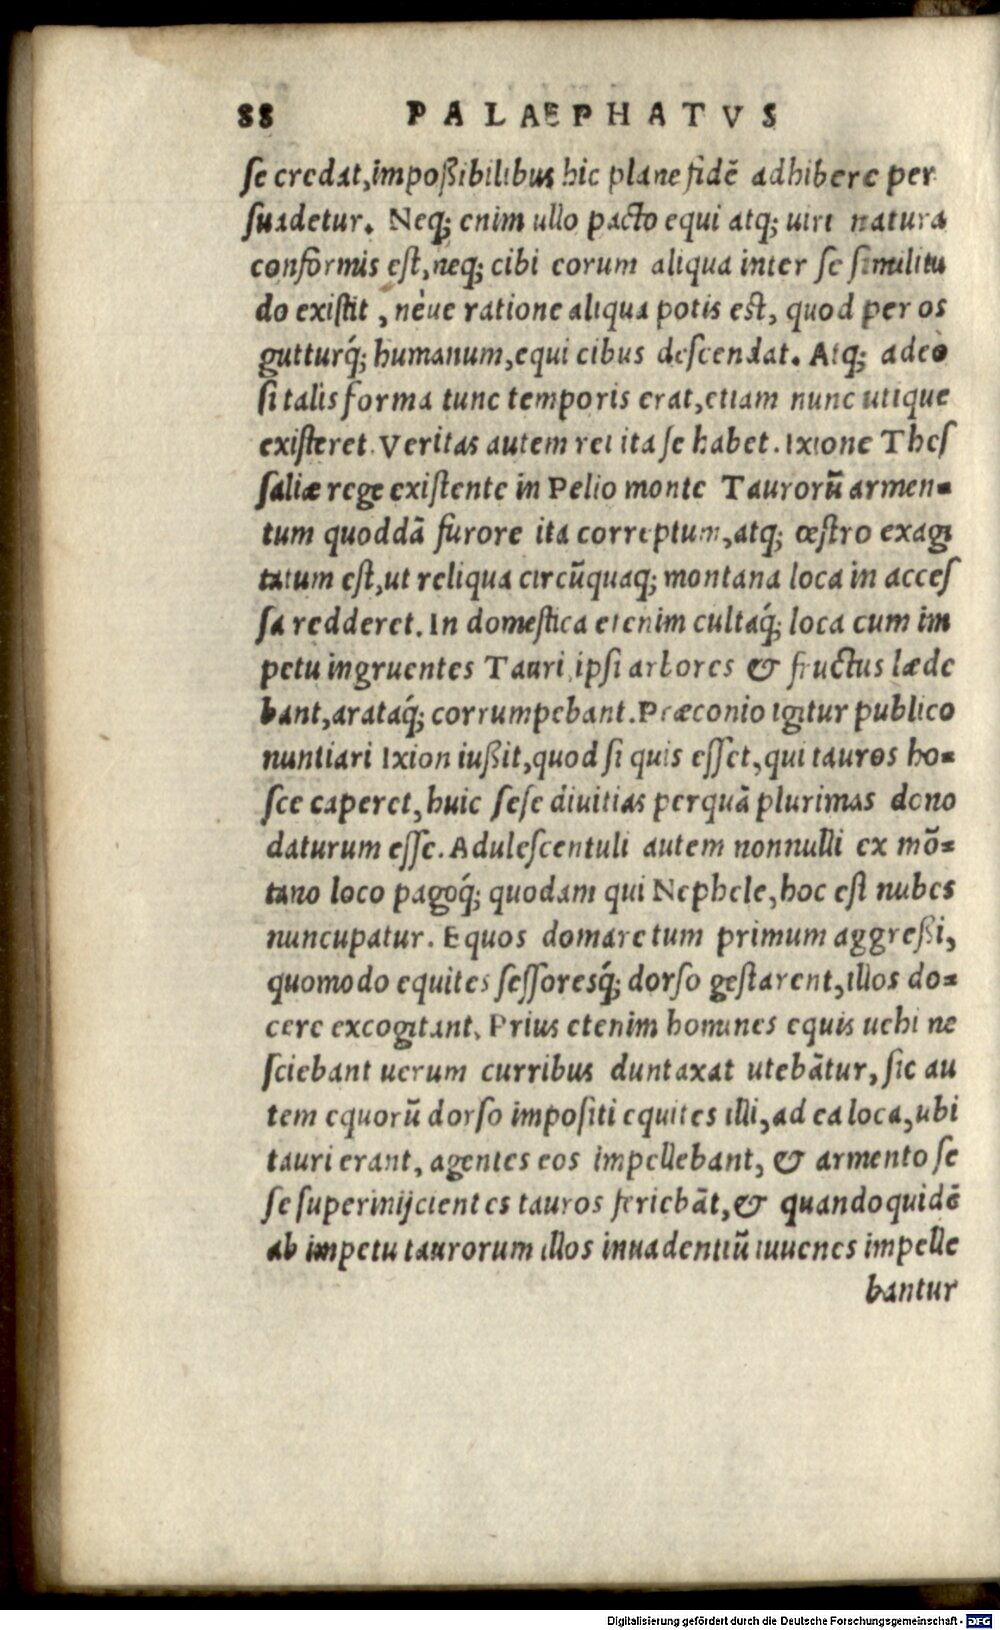 88 PALAEPHATVS
se credat,impoßibilibus hic plane fidē adhibere per
suadetur. Neq; enim ullo pacto equi atq; uiri natura
conformis est,neq; cibi eorum aliqua inter se similitu
do existit , nèue ratione aliqua potis est, quod per os
gutturq́; humanum,equi cibus descendat. Atq; adeò
si talis forma tunc temporis erat,etiam nunc utique
existeret. Veritas autem rei ita se habet. Ixione Thes
saliæ rege existente in Pelio monte Taurorū armen=
tum quoddā furore ita correptum,atq; œstro exagi
tatum est,ut reliqua circūquaq; montana loca in acces
sa redderet. In domestica etenim cultaq́; loca cum im
petu ingruentes Tauri ipsi arbores & fructus læde
bant,arataq́; corrumpebant.Præconio igitur publico
nuntiari Ixion iußit,quod si quis esset,qui tauros ho=
sce caperet,huic sese diuitias perquā plurimas dono
daturum esse. Adulescentuli autem nonnulli ex mō=
tano loco pagoq́; quodam qui Nephele,hoc est nubes
nuncupatur. Equos domare tum primum aggreßi,
quomodo equites sessoresq́; dorso gestarent,illos do=
cere excogitant. Prius etenim homines equis uehi ne
sciebant uerum curribus duntaxat utebātur, sic au
tem equorū dorso impositi equites illi,ad ea loca,ubi
tauri erant, agentes eos impellebant, & armento se
se superinijcientes tauros feriebāt,& quandoquidē
ab impetu taurorum illos inuadentiū iuuenes impelle
bantur
Digitalisierung gefördert durch die Deutsche Forschungsgemeinschaft - DFG